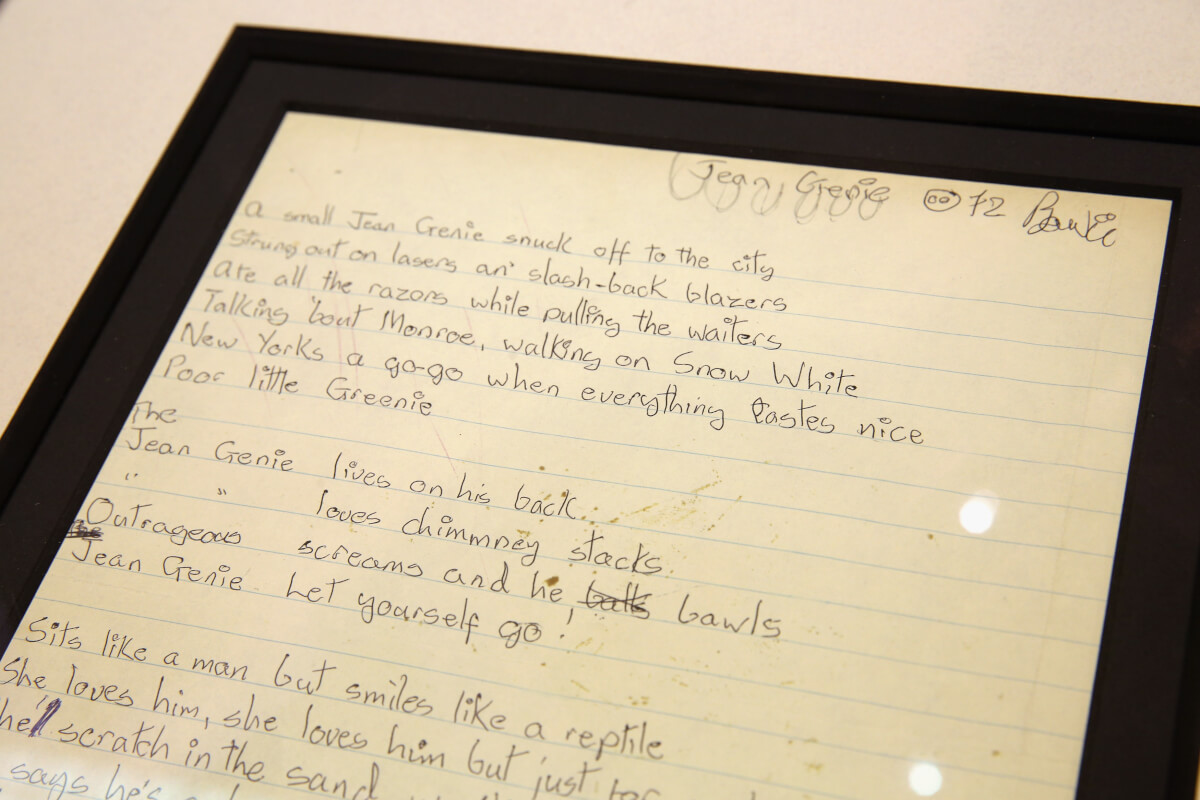 Jean Genie 72 Bowie
A small Jean Genie snuck off to the city
Strung out on lasers an' slash-back blazers
Ate all the razors while pulling the waiters
Talking 'bout Monroe, walking on Snow White
New Yorks a go-go when everything tastes nice
Poor little Greenie
The
Jean Genie lives on his back
" " loves chimmney stacks.
Outrageous screams and he bawls
Jean Genie Let yourself go!
Sits like a man but smiles like a reptile
She loves him, she loves him but just for
he'll scratch in the sand
says he's